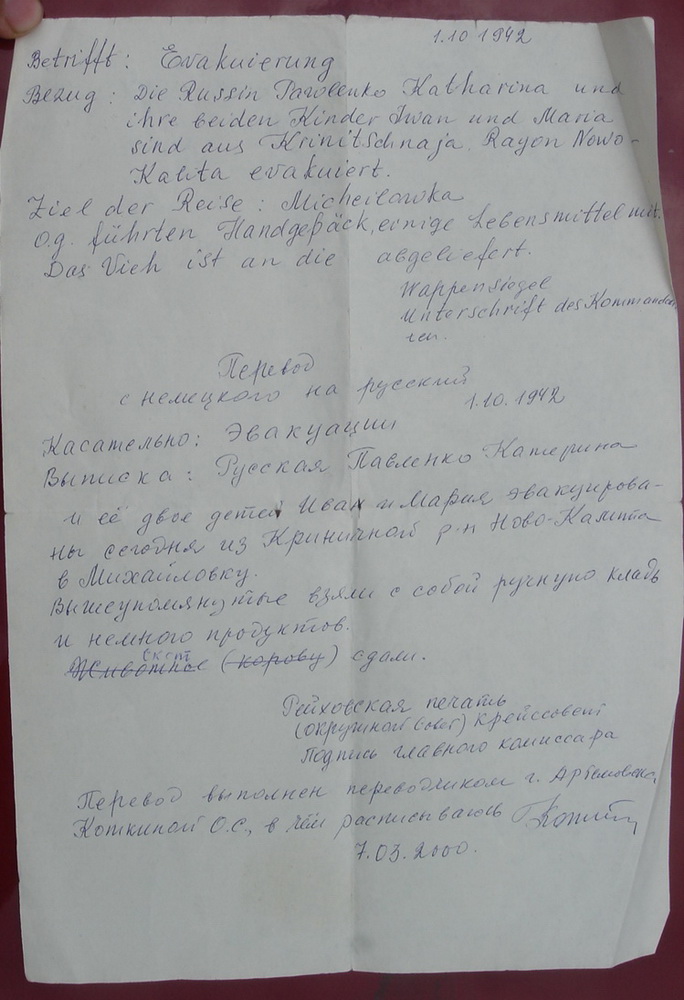 1.10 1942
Betrifft: Evakuierung
Bezug: Die Russin Pawlenko Katharina und
ihre beiden Kinder Iwan und Maria
sind aus Krinitschnaja, Rayon Nowo-
Kalita evakuiert.
Ziel der Reise: Micheilowka
O.g. führten Handgepäck, einige Lebensmittel mit.
Das Vieh ist an die abgeliefert.
Wappensiegel
Unterschrift des Kommandan
ten.
Перевод
с немецкого на русский
1.10.1942
Касательно: Эвакуации
Выписка: Русская Павленко Катерина
и её двое детей Иван и Мария эвакуирова-
ны сегодня из Криничной р-н Ново-Калита
в Михайловку.
Вышеупомянутые взяли с собой ручную кладь
и немного продуктов.
скот
Животное (корову) сдали.
Рейховская печать
(окружной совет)
Подпись главного комиссара
Перевод выполнен переводчиком г. Артемовска
Коткиной О.С., в чём расписываюсь
7.03.2000.